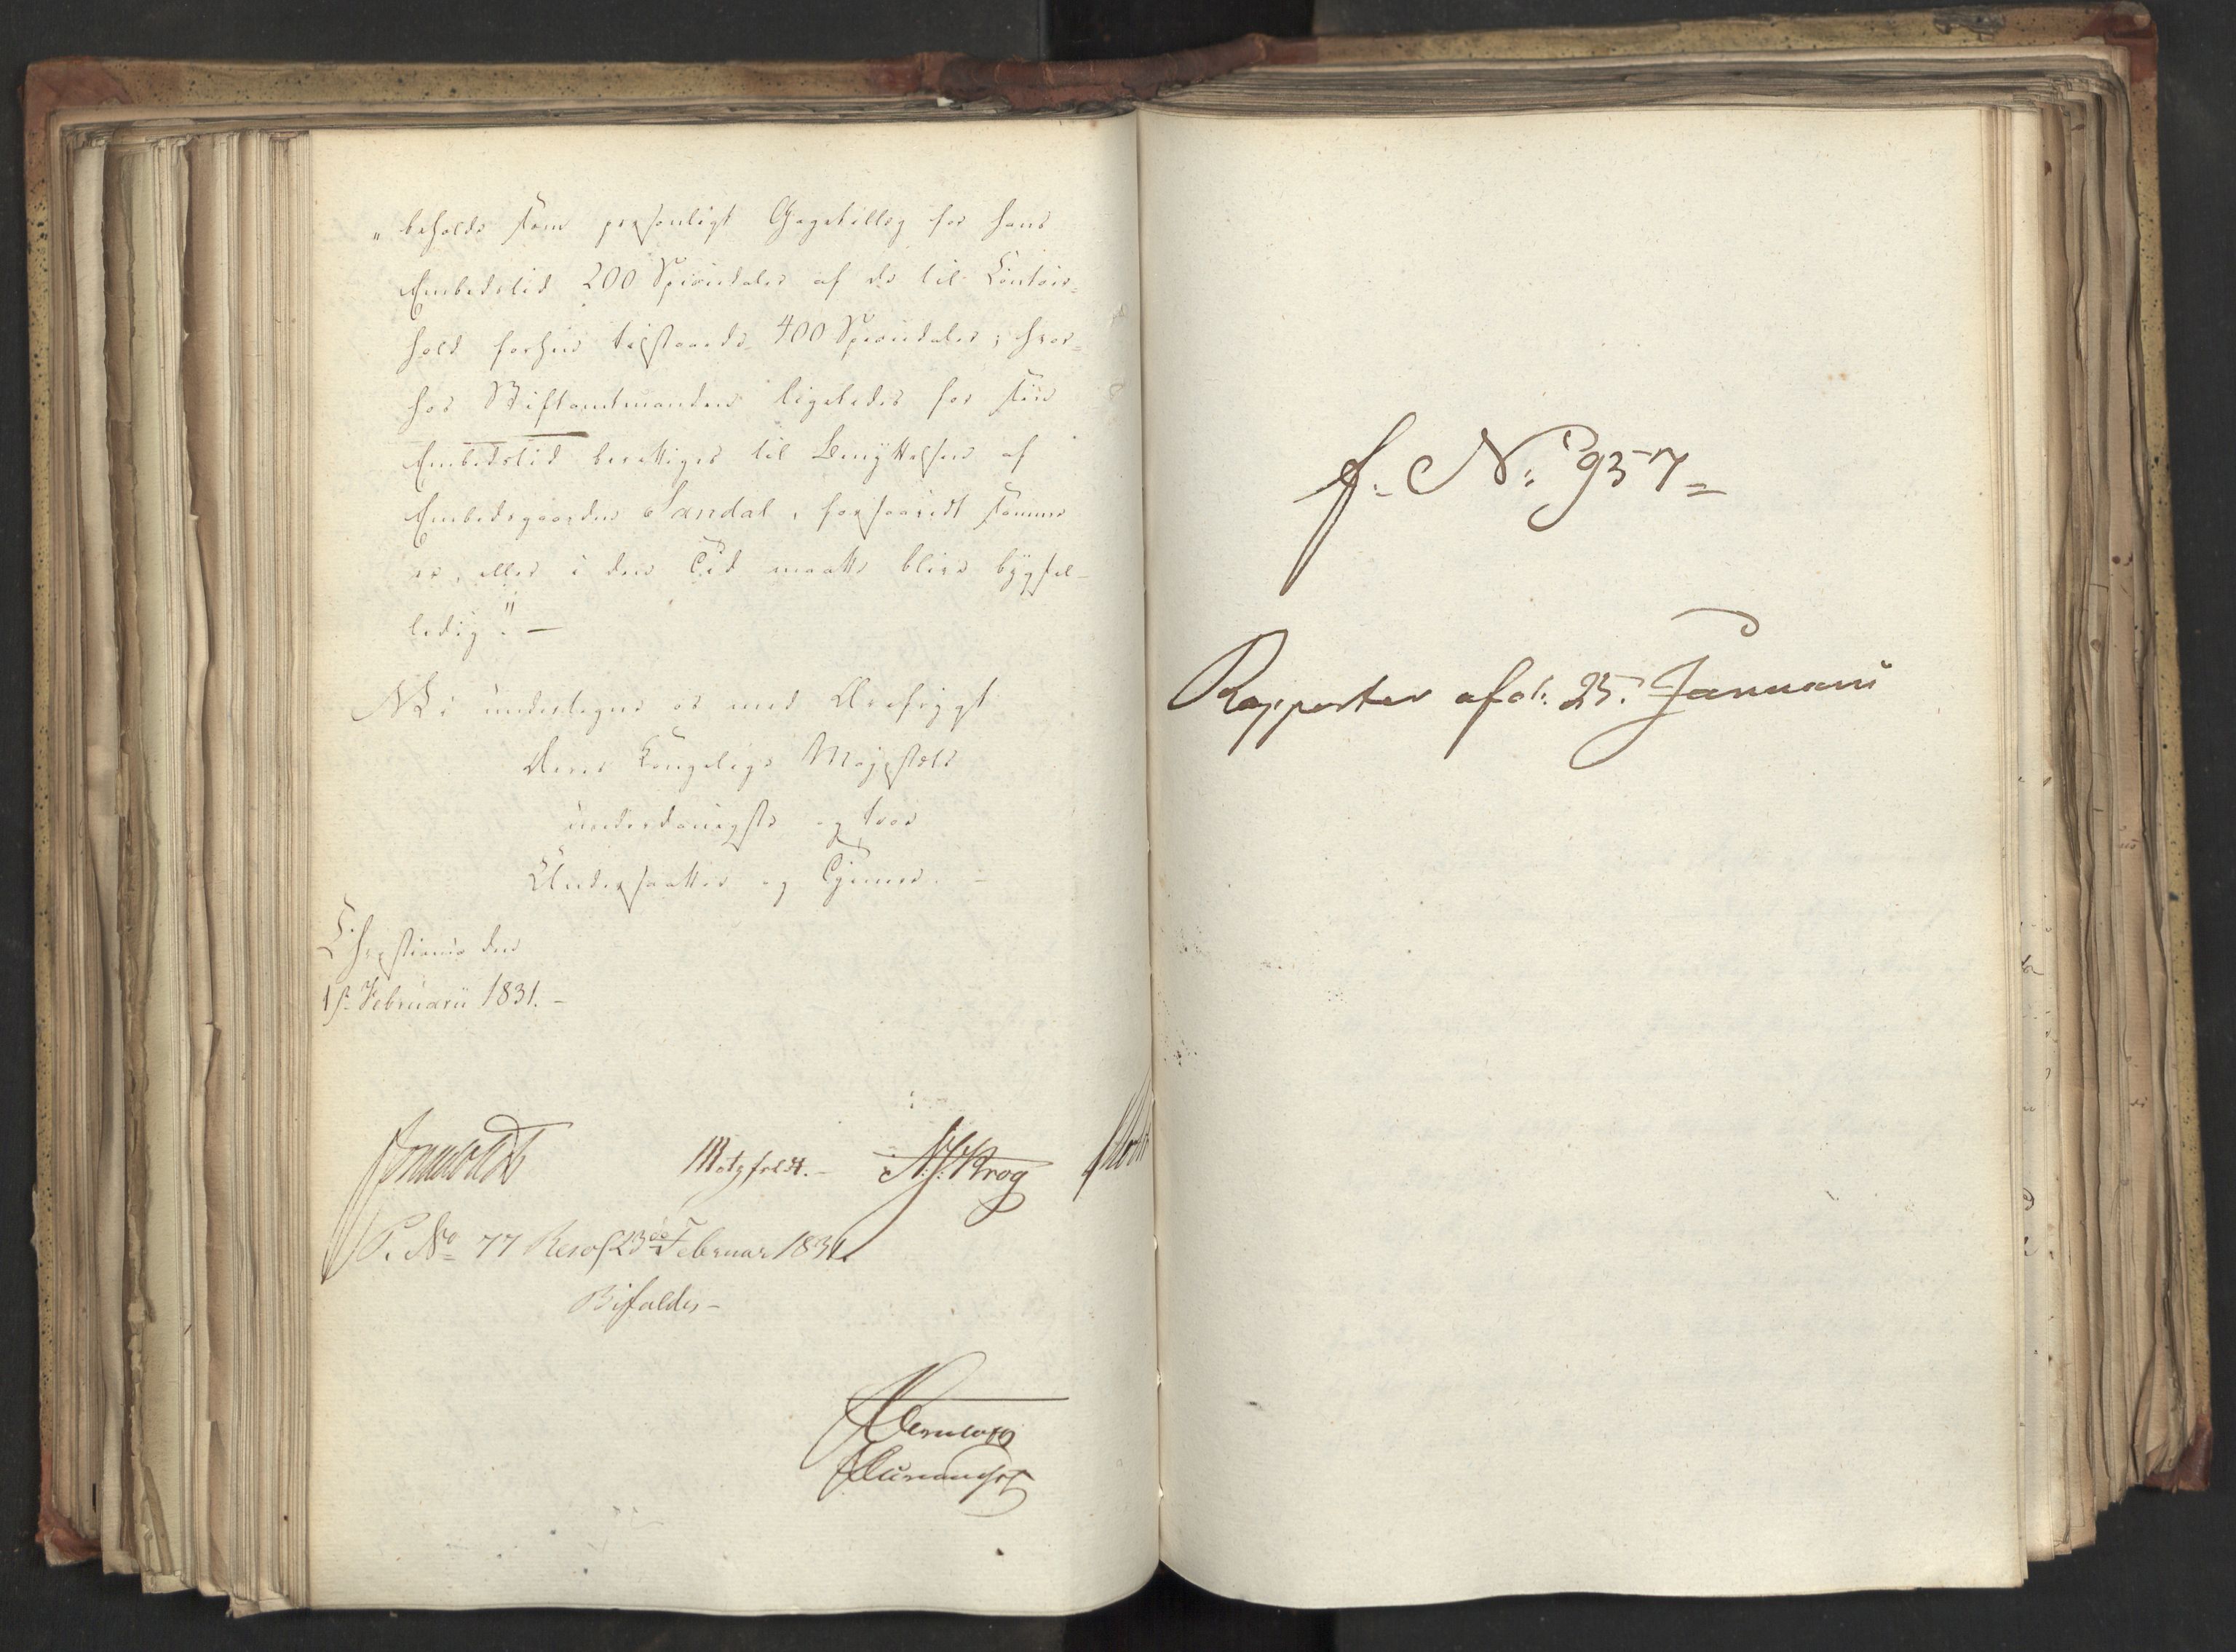 "beholde som personligt Gagetillæg for hans
Embedstid 200 Speciedaler af de til Contoir-
hold forhen tilstaaede 400 Speciedaler; hvor-
hos Stiftamtmanden ligeledes for sin
Embedstid berettiges til Benyttelsen af
Embedsgaarden Sandal, forsaavidt samme
er, eller i den Tid maatte blive bygsel-
ledig." -
Vi undertegne os med Ærefrygt
Deres Kongelige Majestæts
underdanigste og troe
Undersaatter og Tjenere. -
Christiania den
1ste Februarii 1831. -
Motzfeldt. - N. J. Krog
P. No 77 Resol 23de Februar 1831
Bifaldes -
f. No: 957 =
Rapporter af d: 25. Januarii